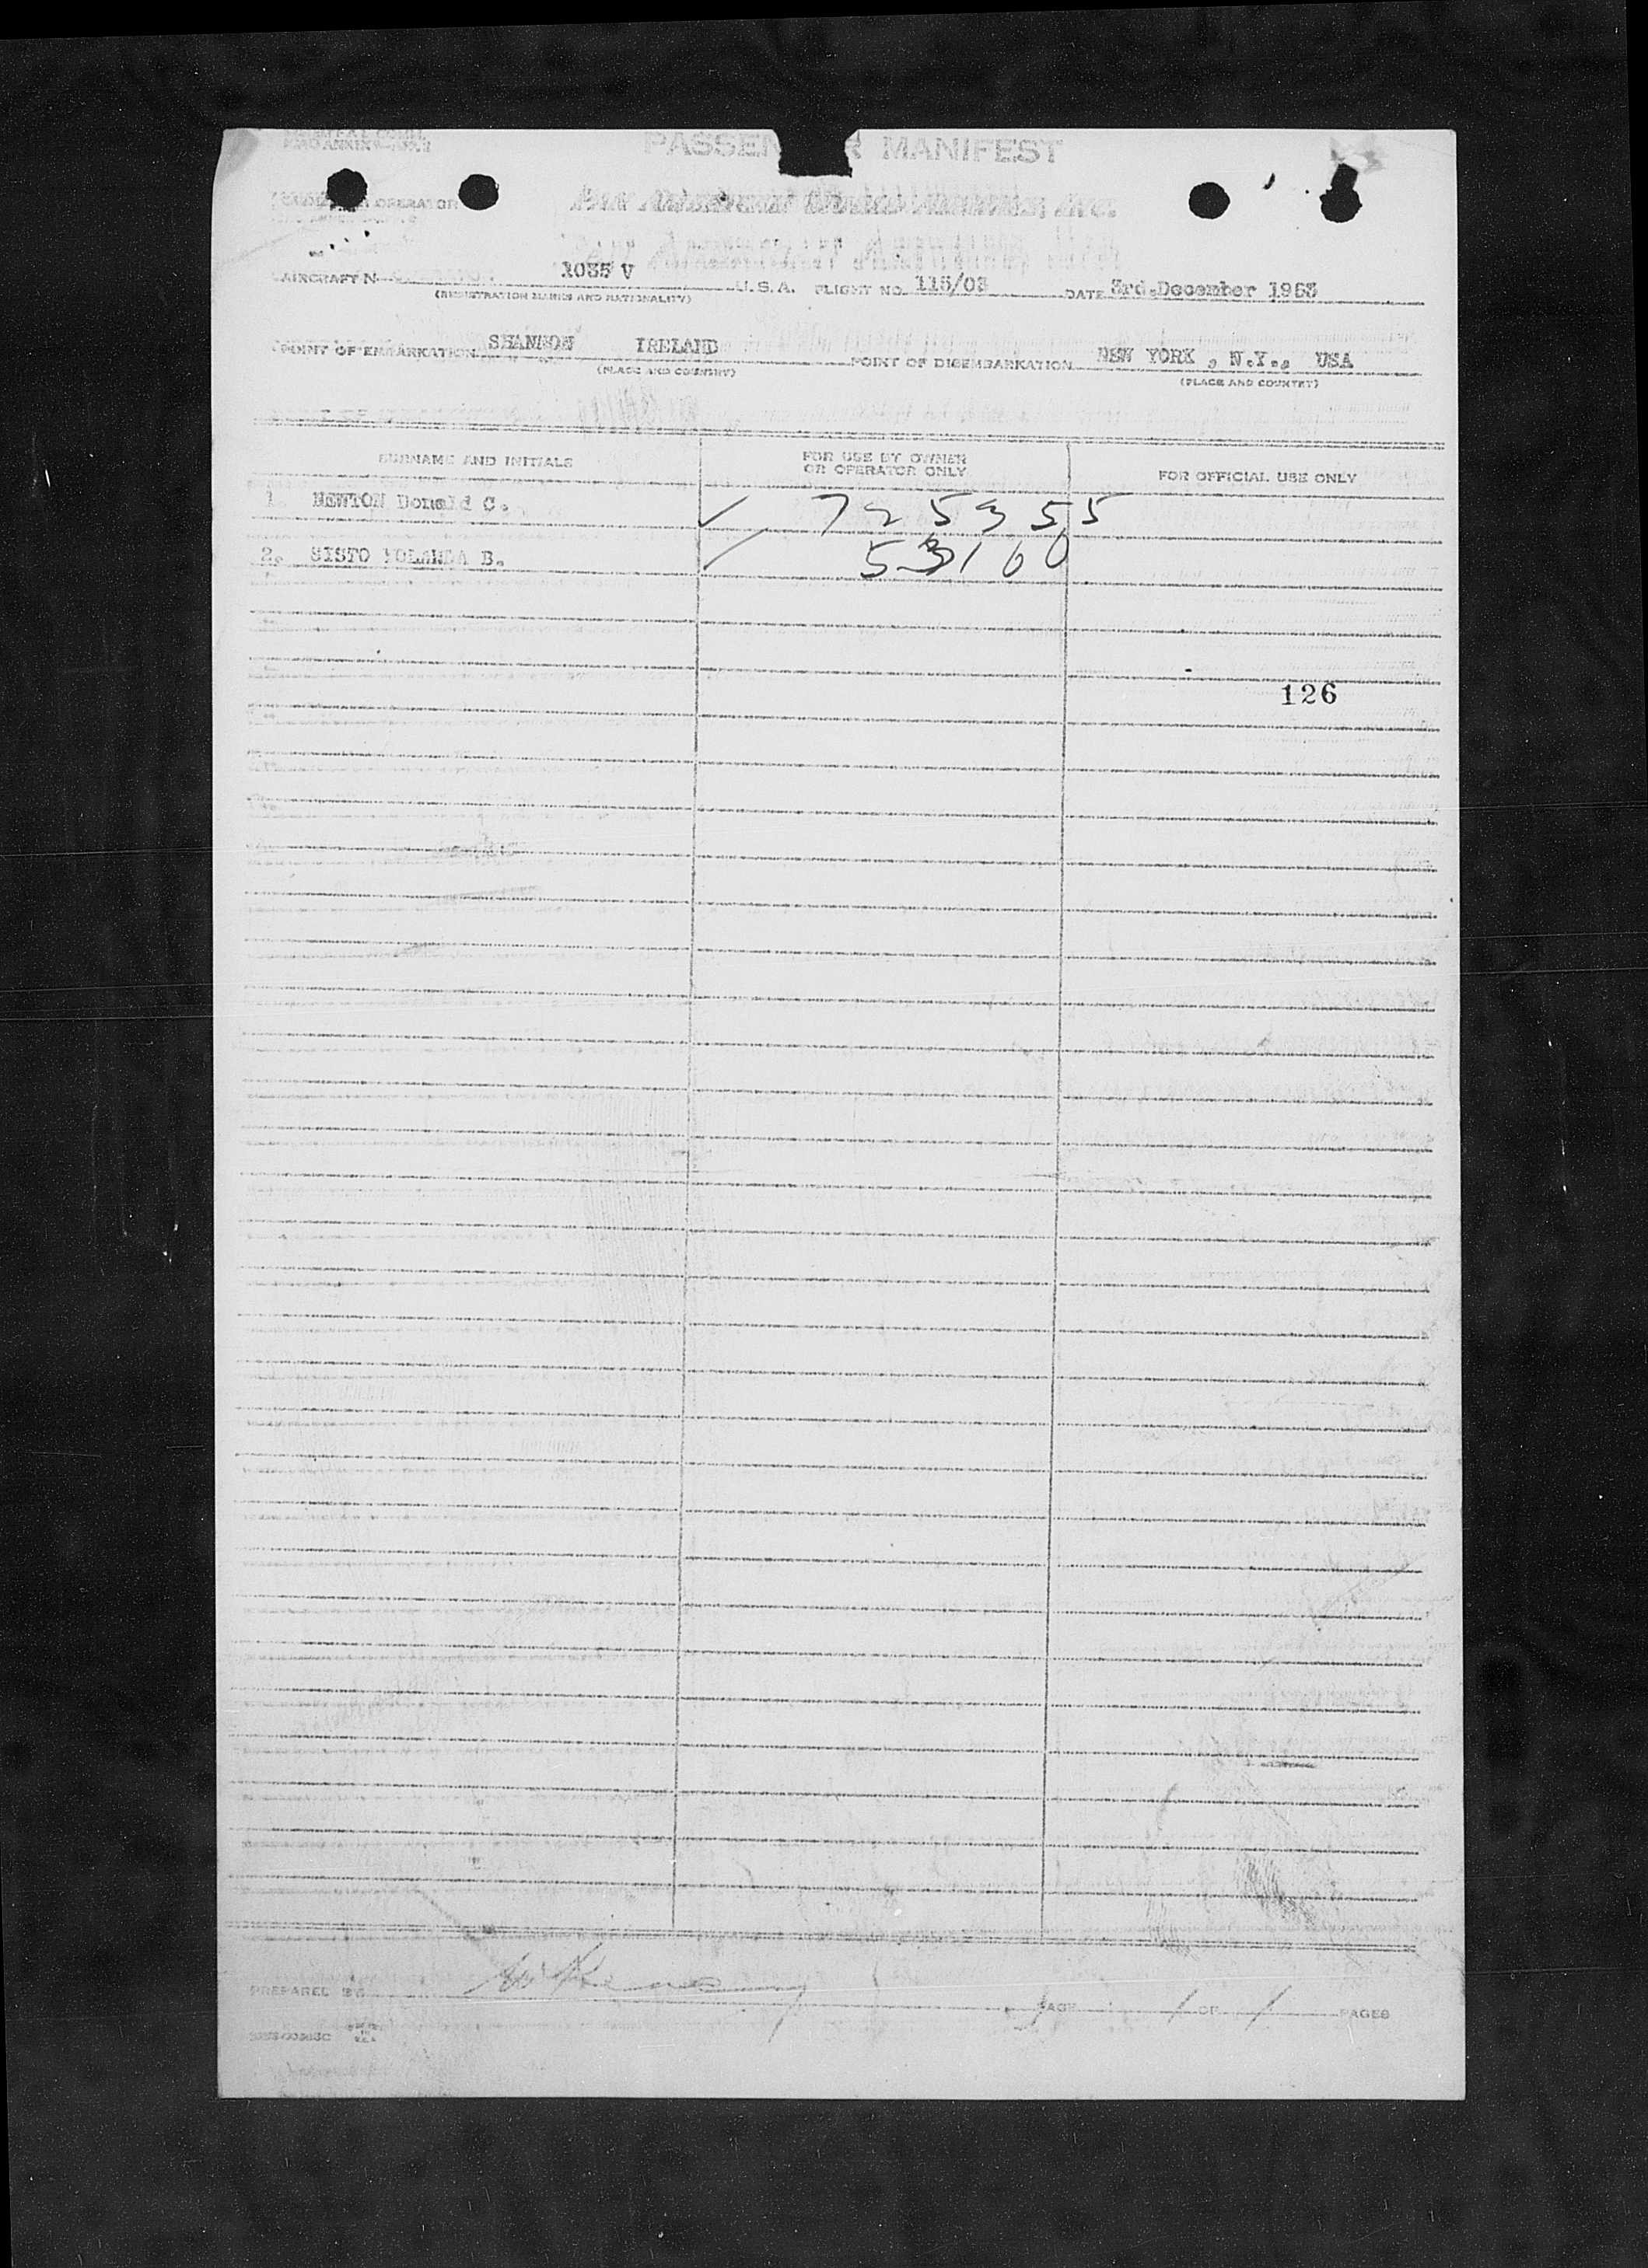 PASSEN R MANIFEST
OPERATOR
AIRCRAFT N 1035 V U.S.A. FLIGHT NO. 115/03 DATE 3rd.December 1953
(REGISTRATION MARKS AND NATIONALITY)
POINT OF EMBARKATION SHANNON IRELAND POINT OF DISEMBARKATION NEW YORK , N.Y., USA
(PLACE AND COUNTRY) (PLACE AND COUNTRY)
SURNAME AND INITIALS FOR USE BY OWNER OR OPERATOR ONLY FOR OFFICIAL USE ONLY
1. NEWTON Donald C. ✓ 7253 55
2. SISTO YOLANDA B. ✓ 53160
126
PREPARED BY PAGE 1 OF 1 PAGES